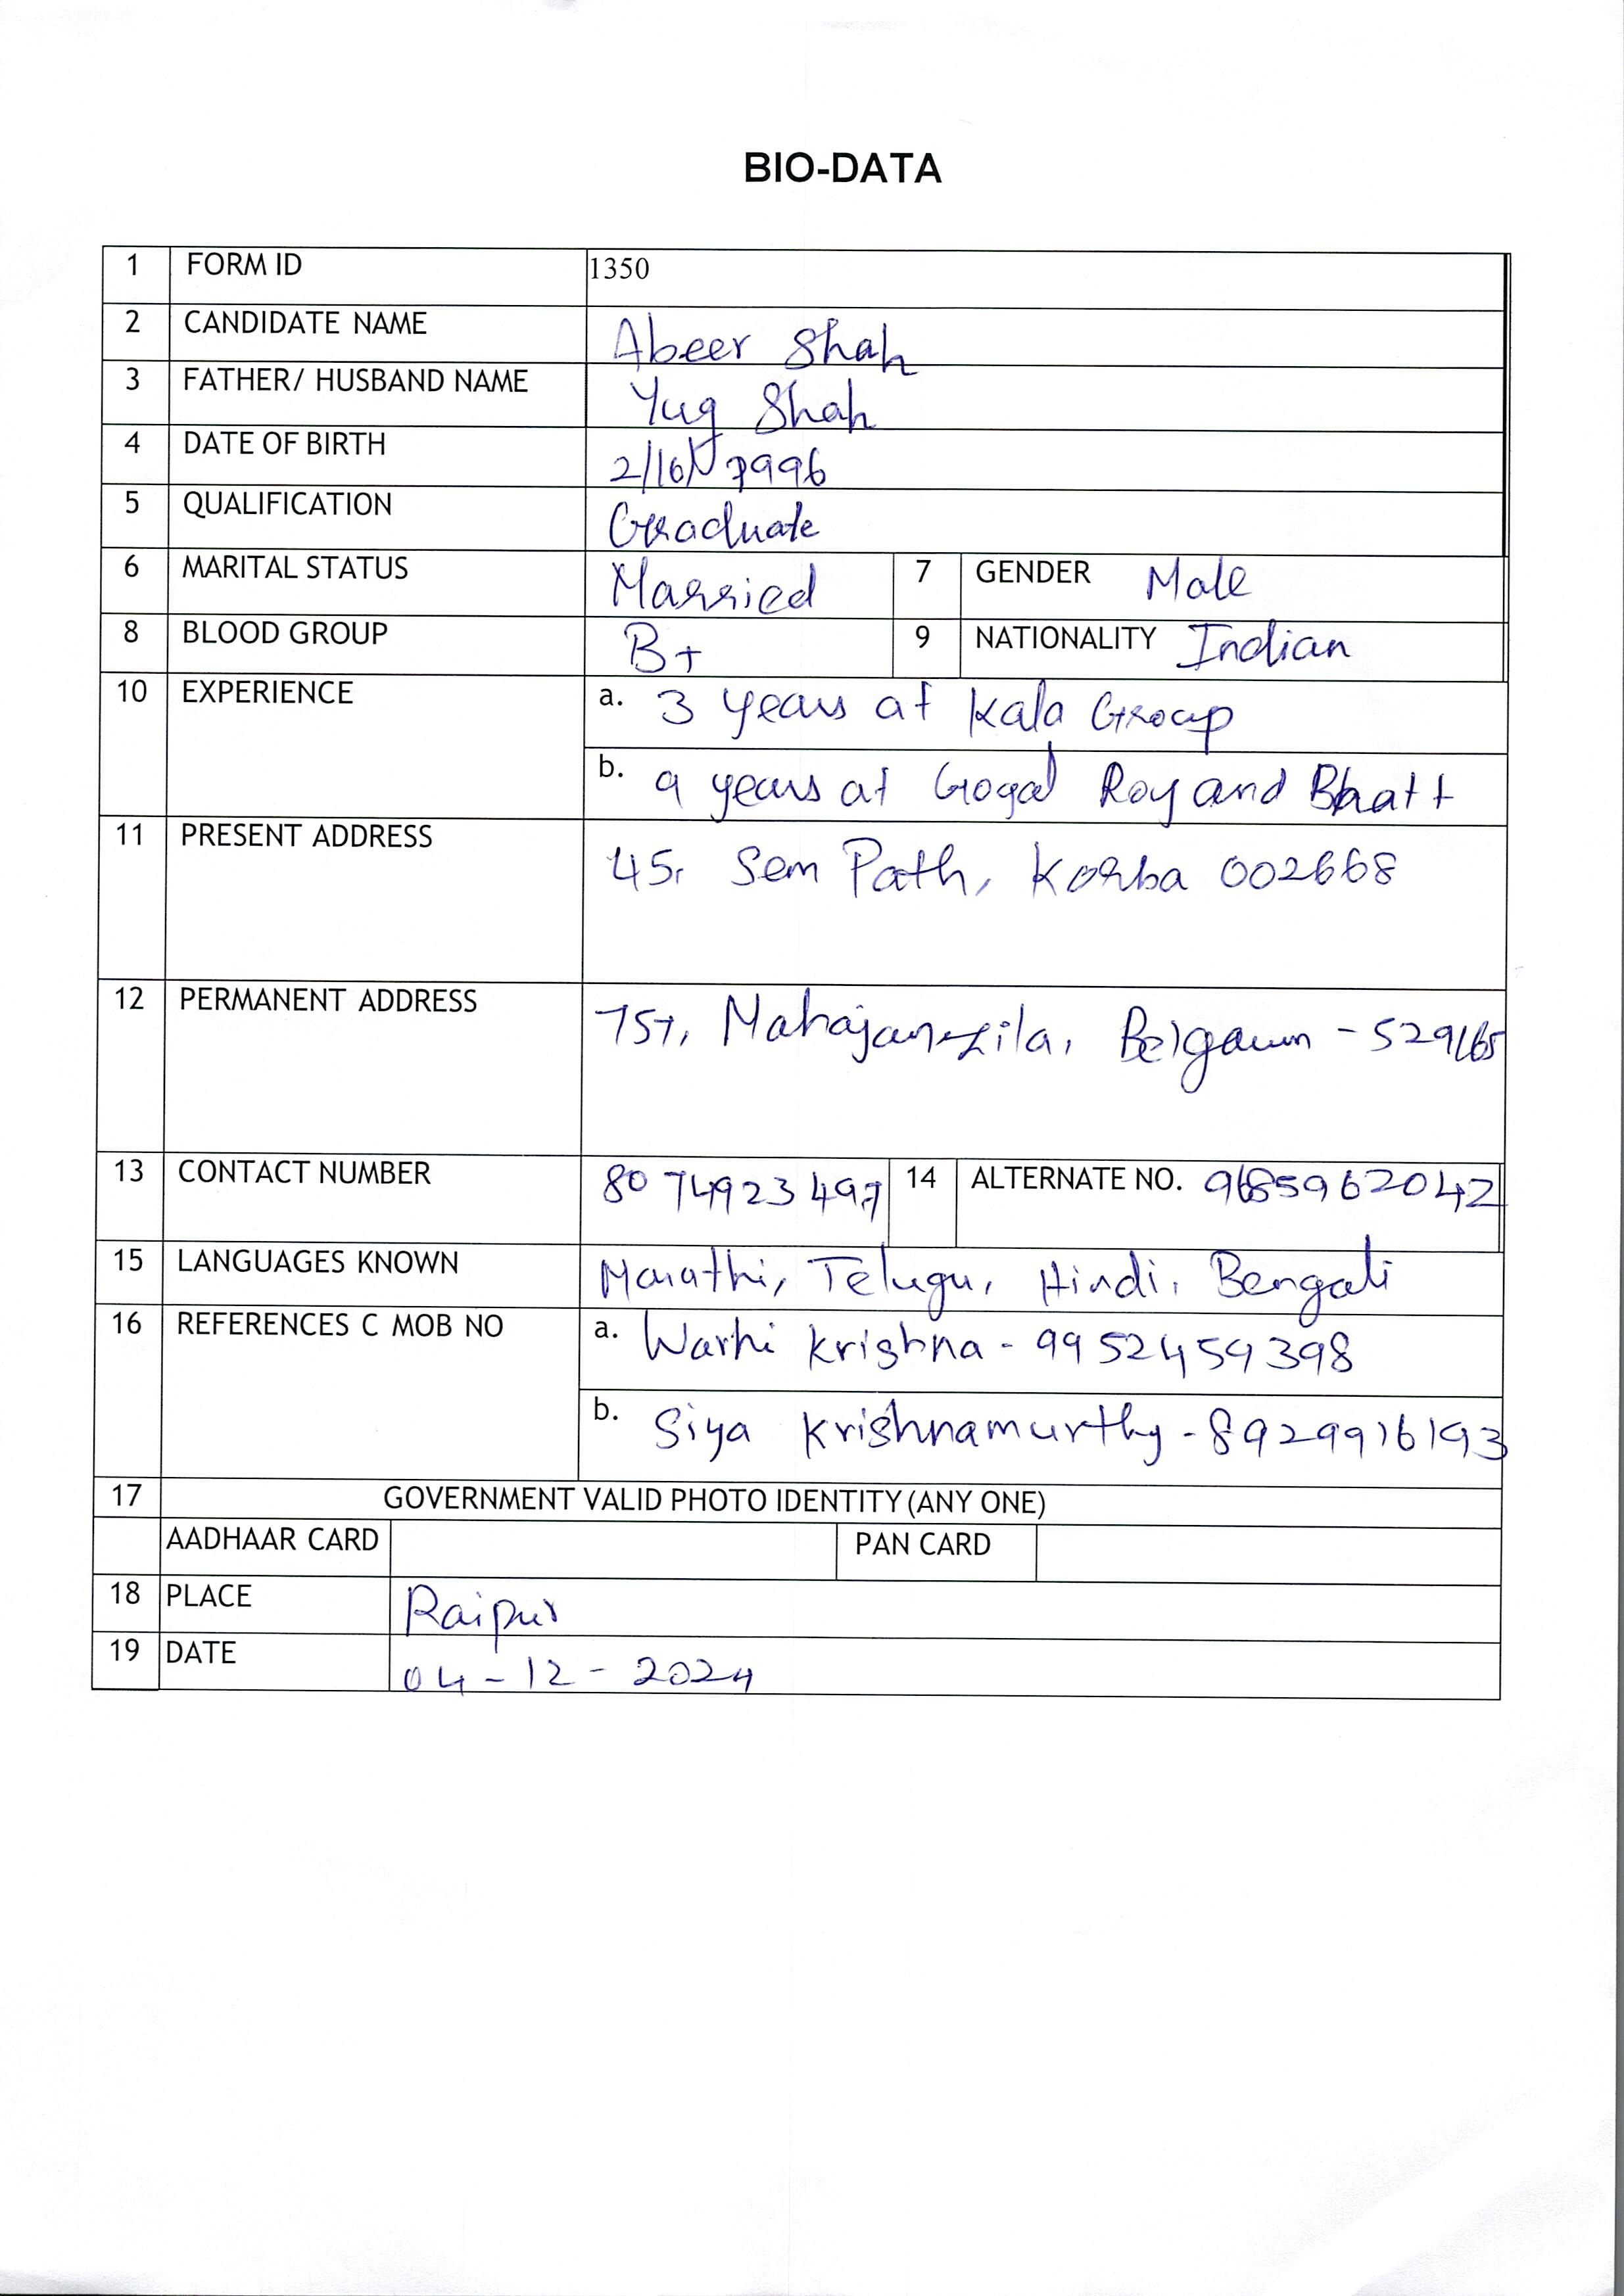 BIO-DATA
1 FORM ID 1350
2 CANDIDATE NAME Abeer Shah
3 FATHER/ HUSBAND NAME Yug Shah
4 DATE OF BIRTH 2/16/1996
5 QUALIFICATION Graduate
6 MARITAL STATUS Married 7 GENDER Male
8 BLOOD GROUP B+ 9 NATIONALITY Indian
10 EXPERIENCE a. 3 years at Kala Group
b. 9 years at Gogal Roy and Bhatt
11 PRESENT ADDRESS 45, Sem Path, Korba 002668
12 PERMANENT ADDRESS Mahajan zila, Belgaum - 529165
13 CONTACT NUMBER 8074923497 14 ALTERNATE NO. 9685962042
15 LANGUAGES KNOWN Marathi, Telugu, Hindi, Bengali
16 REFERENCES C MOB NO a. Warhi Krishna - 9952459398
b. Siya Krishnamurthy - 8929916193
17 GOVERNMENT VALID PHOTO IDENTITY (ANY ONE)
AADHAAR CARD PAN CARD
18 PLACE Raipur
19 DATE 04-12-2024